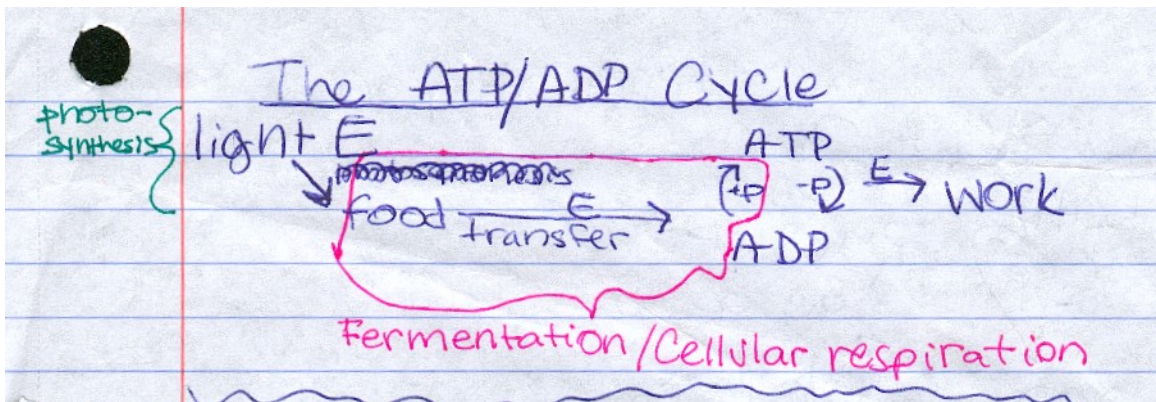 The ATP/ADP Cycle
photo-
synthesis
light E
ATP
food
E
transfer
+P
-P
E
work
ADP
Fermentation/Cellular respiration